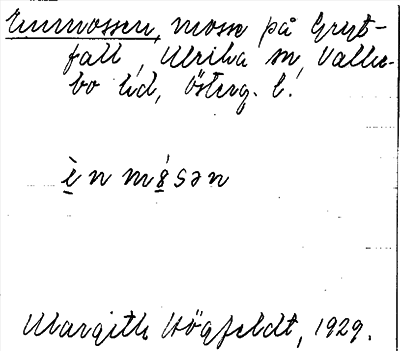 Enmossen, mosse på Gryt-
fall, Ulrika sn, Valke-
bo hd, Österg. l.
è n m ó s ə n
Margith Högfeldt, 1929.